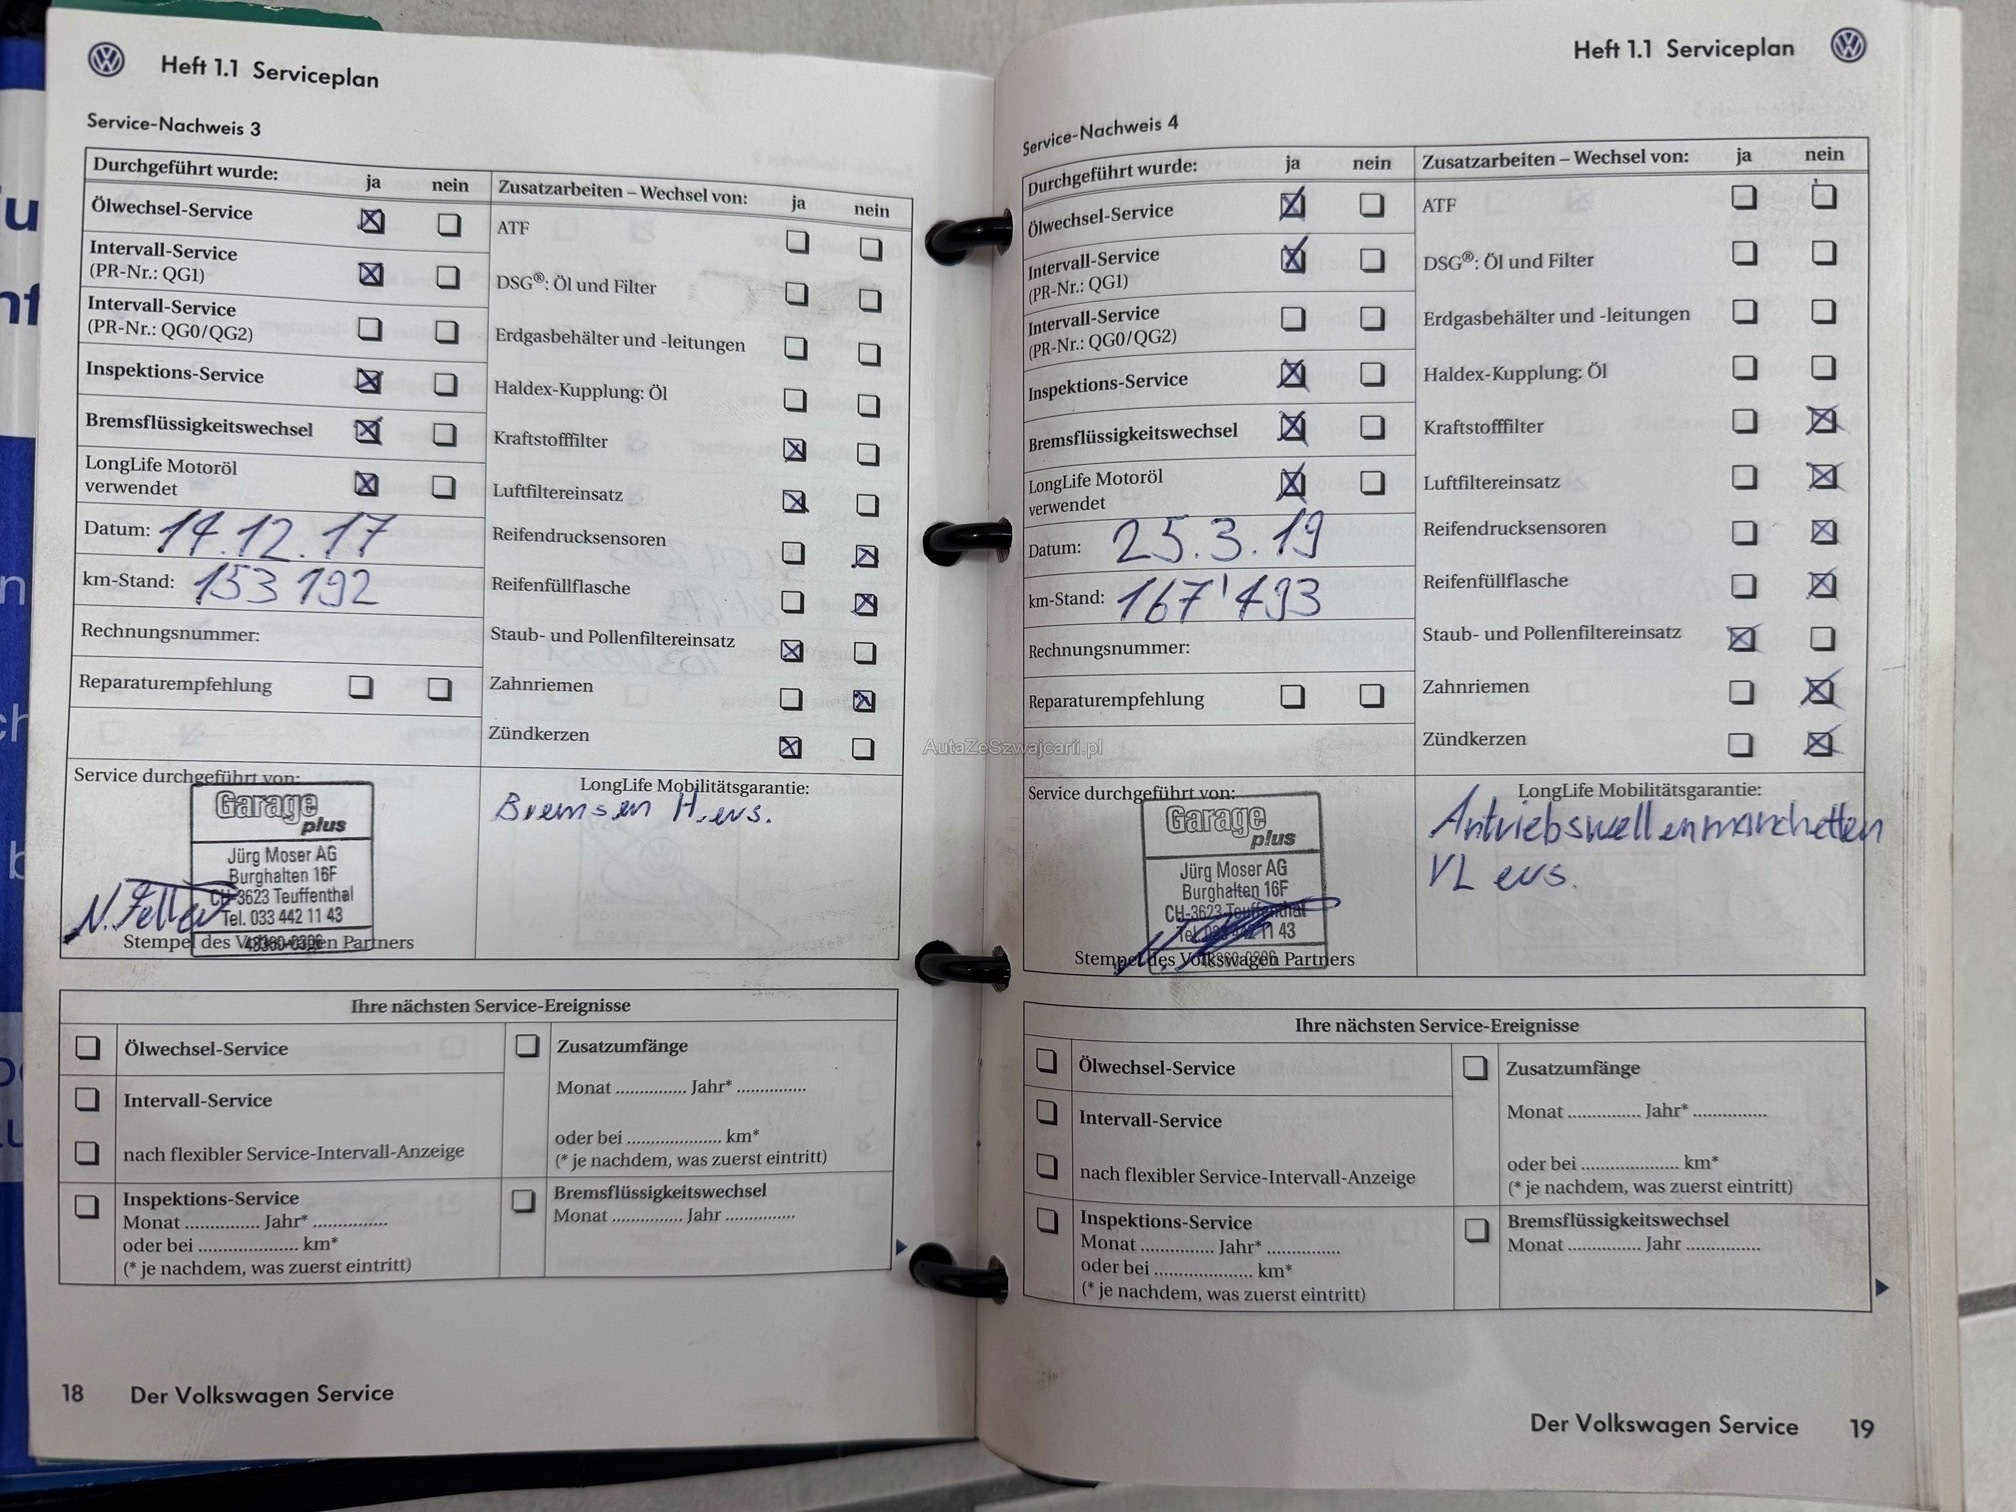 Heft 1.1 Serviceplan
Service-Nachweis 3
Durchgeführt wurde: ja nein
Ölwechsel-Service
Intervall-Service
(PR-Nr.: QG1)
Intervall-Service
(PR-Nr.: QG0/QG2)
Inspektions-Service
Bremsflüssigkeitswechsel
LongLife Motoröl
verwendet
Datum: 14.12.17
km-Stand: 153 192
Rechnungsnummer:
Reparaturempfehlung
Zusatzarbeiten – Wechsel von: ja nein
ATF
DSG®: Öl und Filter
Erdgasbehälter und -leitungen
Haldex-Kupplung: Öl
Kraftstofffilter
Luftfiltereinsatz
Reifendrucksensoren
Reifenfüllflasche
Staub- und Pollenfiltereinsatz
Zahnriemen
Zündkerzen
Service durchgeführt von:
Garage
plus
Jürg Moser AG
Burghalten 16F
CH-3623 Teuffenthal
Tel. 033 442 11 43
Stempel des Volkswagen Partners
LongLife Mobilitätsgarantie:
Bremsen H. ers.
Ihre nächsten Service-Ereignisse
Ölwechsel-Service
Intervall-Service
nach flexibler Service-Intervall-Anzeige
Inspektions-Service
Monat ............... Jahr* ...............
oder bei .................... km*
(* je nachdem, was zuerst eintritt)
Zusatzumfänge
Monat .............. Jahr* ..............
oder bei .................... km*
(* je nachdem, was zuerst eintritt)
Bremsflüssigkeitswechsel
Monat .............. Jahr ..............
18 Der Volkswagen Service
Heft 1.1 Serviceplan
Service-Nachweis 4
Durchgeführt wurde: ja nein
Ölwechsel-Service
Intervall-Service
(PR-Nr.: QG1)
Intervall-Service
(PR-Nr.: QG0/QG2)
Inspektions-Service
Bremsflüssigkeitswechsel
LongLife Motoröl
verwendet
Datum: 25.3.19
km-Stand: 167'493
Rechnungsnummer:
Reparaturempfehlung
Zusatzarbeiten – Wechsel von: ja nein
ATF
DSG®: Öl und Filter
Erdgasbehälter und -leitungen
Haldex-Kupplung: Öl
Kraftstofffilter
Luftfiltereinsatz
Reifendrucksensoren
Reifenfüllflasche
Staub- und Pollenfiltereinsatz
Zahnriemen
Zündkerzen
Service durchgeführt von:
Garage
plus
Jürg Moser AG
Burghalten 16F
CH-3623 Teuffenthal
Tel. 033 442 11 43
Stempel des Volkswagen Partners
LongLife Mobilitätsgarantie:
Antriebswellenmanchetten
VL ers.
Ihre nächsten Service-Ereignisse
Ölwechsel-Service
Intervall-Service
nach flexibler Service-Intervall-Anzeige
Inspektions-Service
Monat ............... Jahr* ...............
oder bei .................... km*
(* je nachdem, was zuerst eintritt)
Zusatzumfänge
Monat ............... Jahr* ...............
oder bei .................... km*
(* je nachdem, was zuerst eintritt)
Bremsflüssigkeitswechsel
Monat ............... Jahr ...............
Der Volkswagen Service 19
AutaZeSzwajcarii.pl